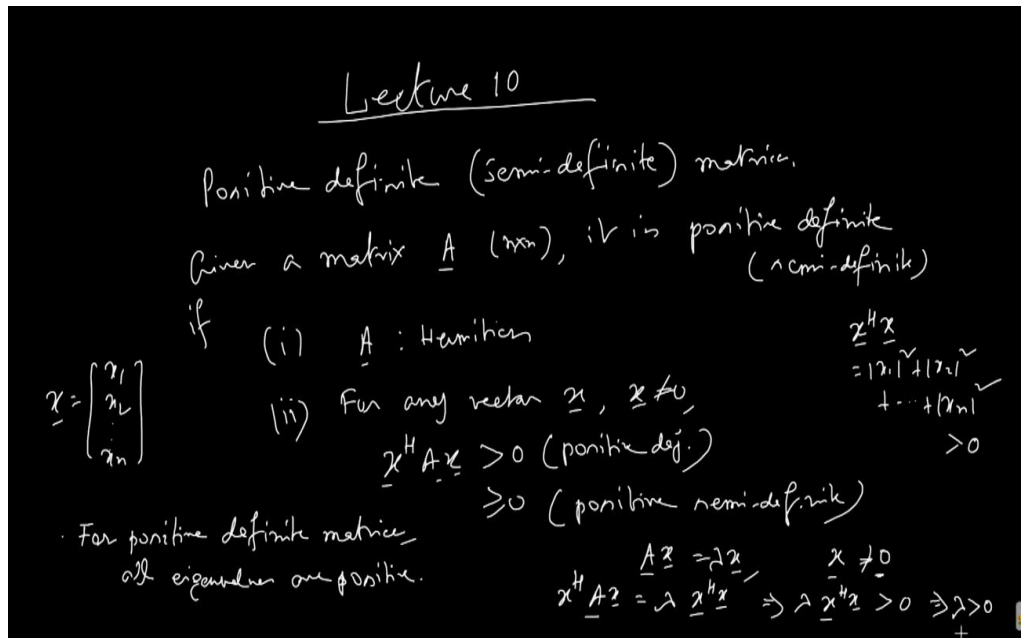 Lecture 10
Positive definite (semi-definite) matrix.
Given a matrix A (n×n), it is positive definite
(semi-definite)
if
(i) A : Hermitian
(ii) For any vector x, x ≠ 0,
x^H A x > 0 (positive def.)
≥ 0 (positive semi-definite)
x = [x1 x2 . xn]
x^H x
= |x1|² + |x2|²
+ ... + |xn|²
> 0
· For positive definite matrices,
all eigenvalues are positive.
A x = λ x, x ≠ 0
x^H A x = λ x^H x ⇒ λ x^H x > 0 ⇒ λ > 0